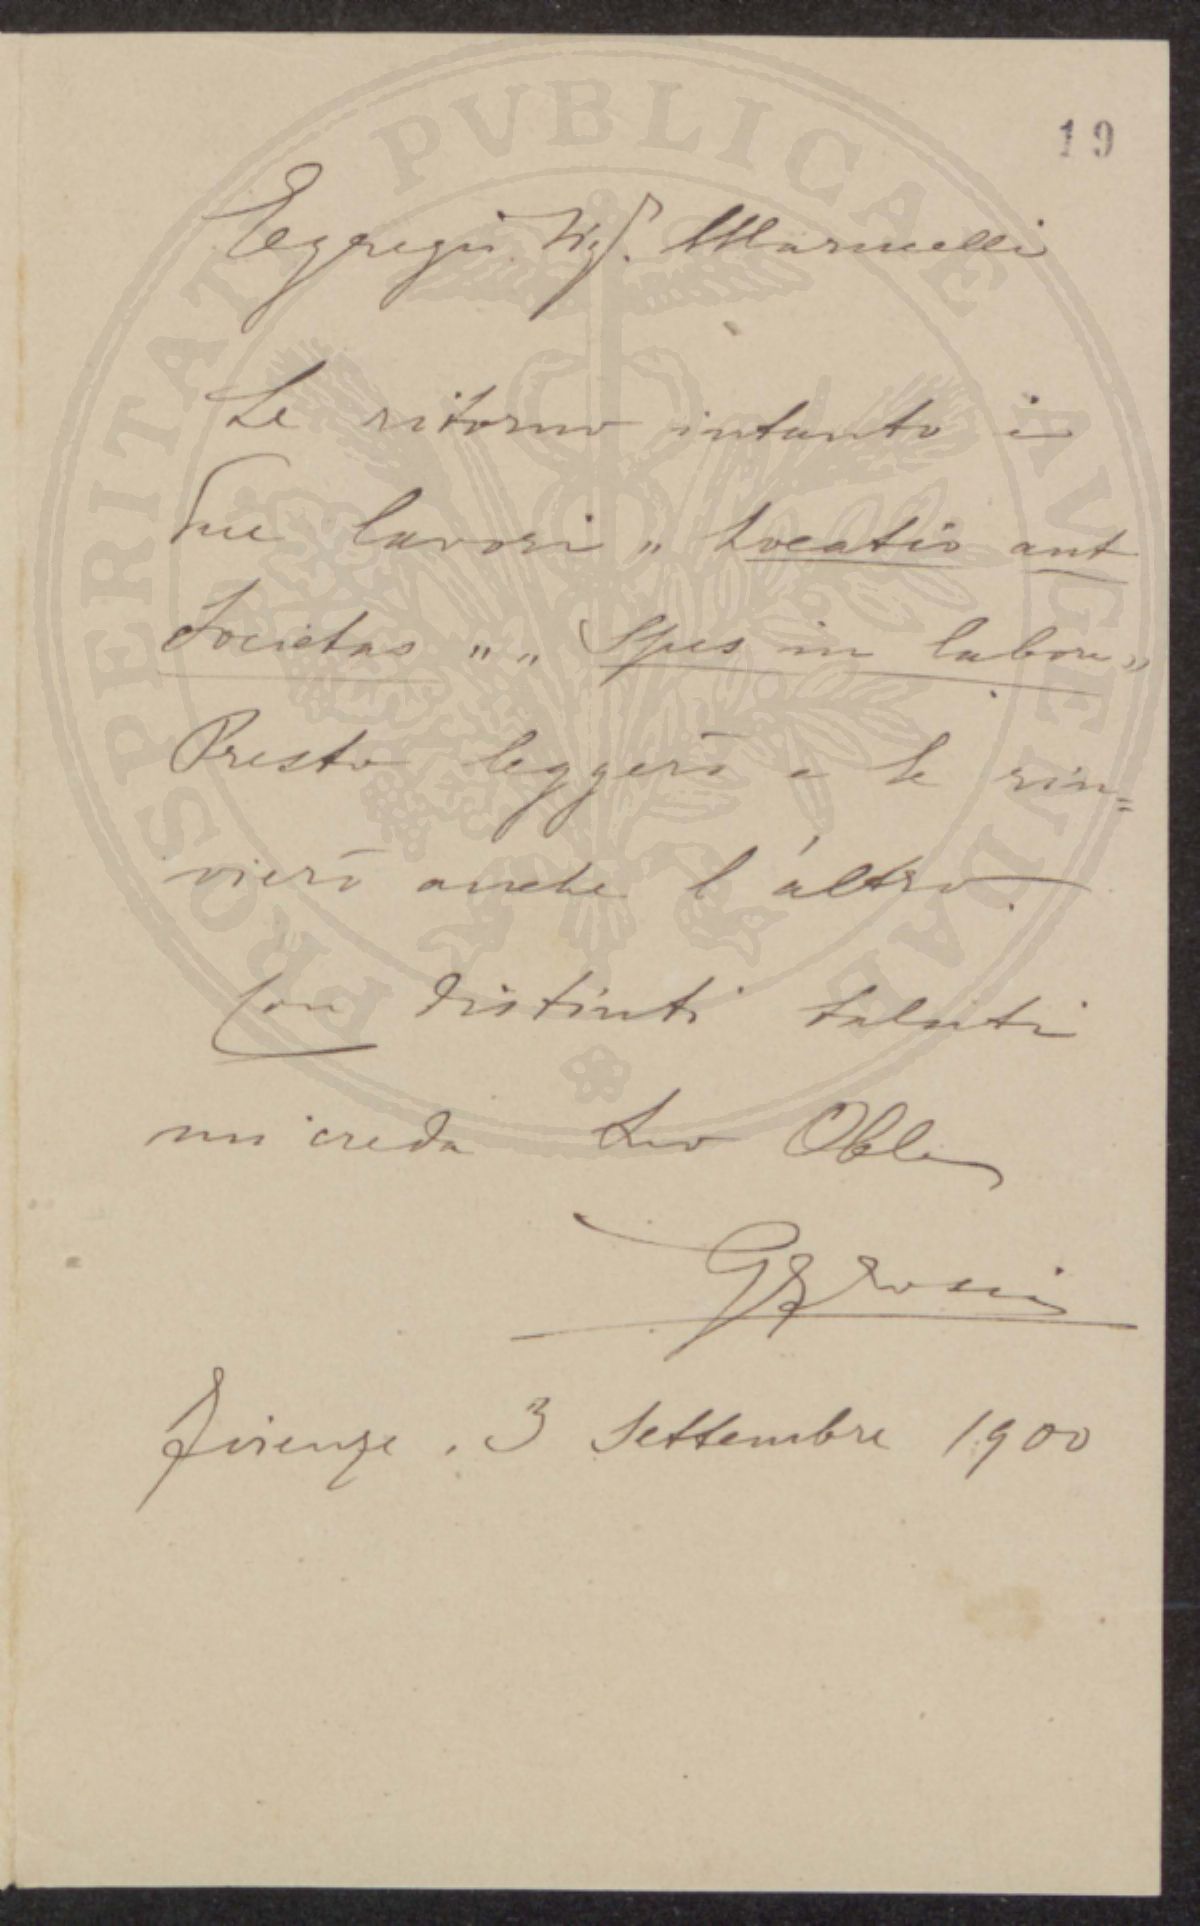 19
Egregio Sig. Marinelli
Le ritorno intanto i
due lavori „ Locatio aut
Societas „ „ Spes in labore „
Presto leggerò e Le rin=
vierò anche l'altro.
Con distinti saluti
mi creda Suo Obbl
Firenze. 3 Settembre 1900
PROSPERITATI PVBLICAE AVGENDAE